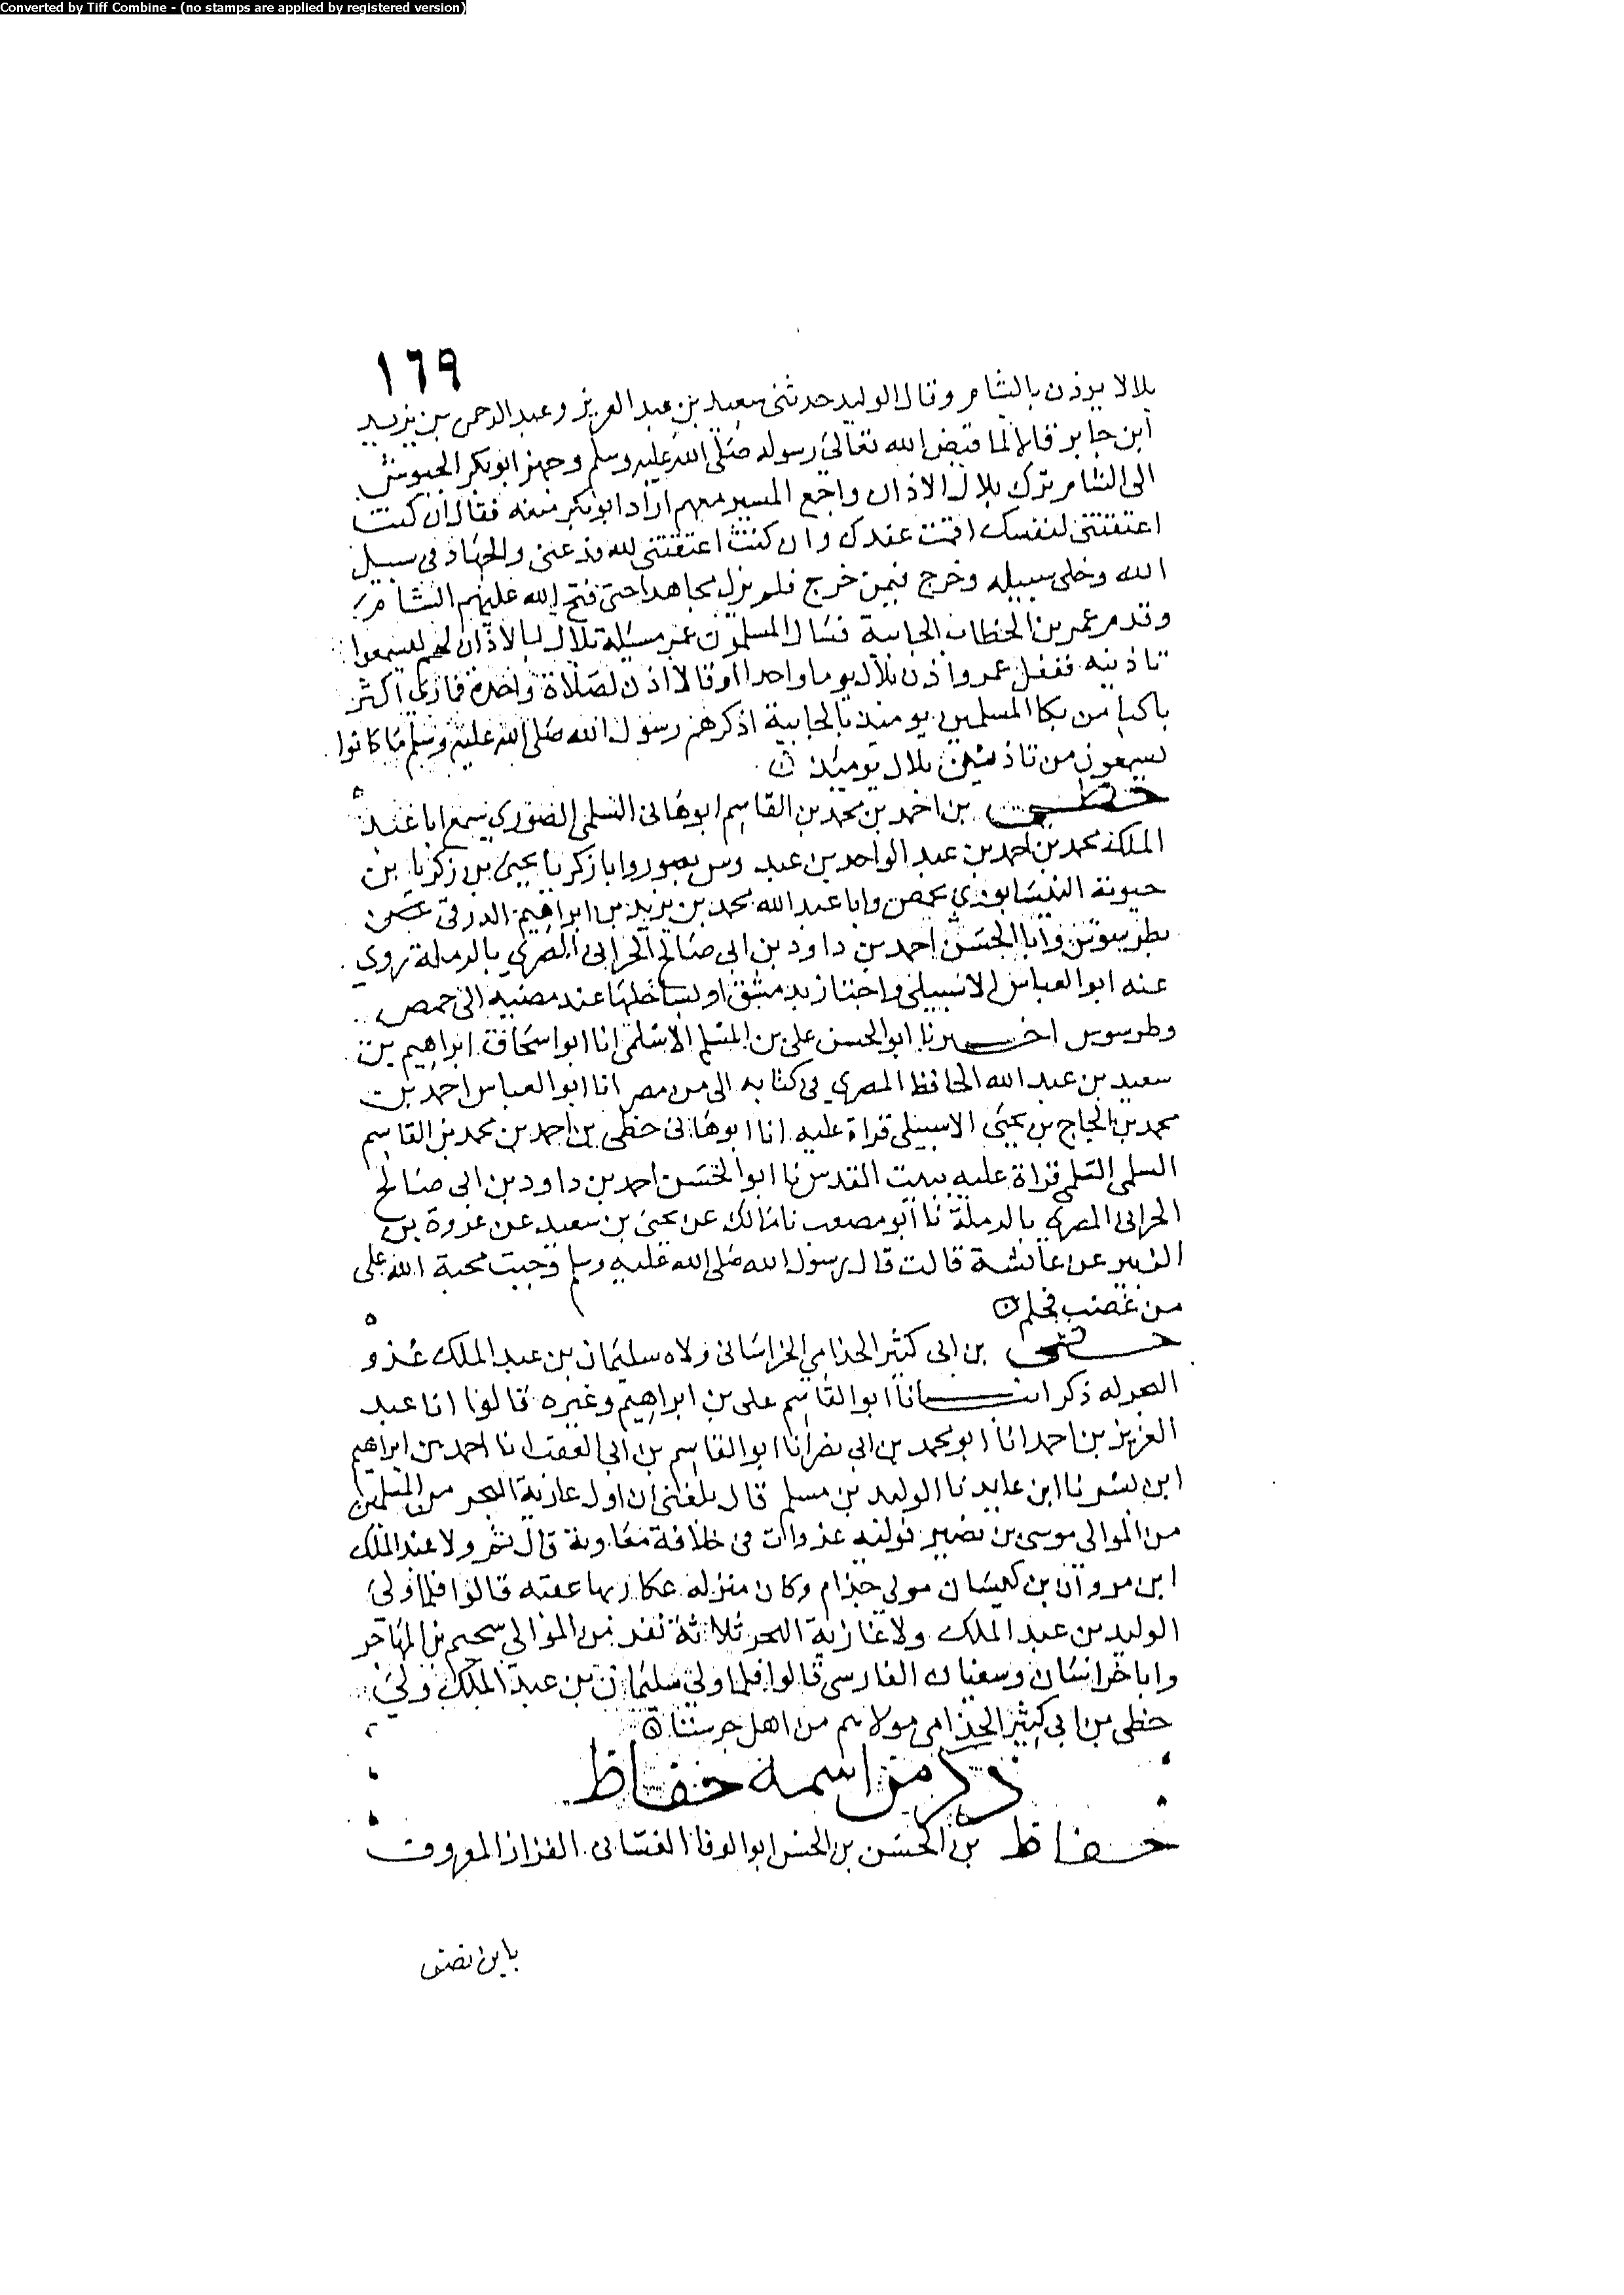 Converted by Tiff Combine - (no stamps are applied by registered version)
١٦٩
بلالا يوذن بالشام وقال الوليد حدثني سعيد بن عبد العزيز وعبد الرحمن بن يزيد
ابن جابر قالا لما قبض الله تعالى رسوله صلى الله عليه وسلم وجهز ابو بكر الجيوش
الى الشام ترك بلال الاذان واجمع المسير معهم اراد ابو بكر منعه فقال ان كنت
اعتقتني لنفسك اقمت عندك وان كنت اعتقتني لله فدعني والجهاد في سبيل
الله وخلى سبيله وخرج فيمن خرج فلم يزل مجاهدا حتى فتح الله عليهم الشام
وقدم عمر بن الخطاب الجابية فسال المسلمون عمر مسيلة بلال بالاذان لهم ليسمعوا
تاذينه ففعل عمر واذن بلال يوما واحدا او قالا اذن لصلاة واحدة فما رى اكثر
باكيا من بكا المسلمين يوميذ بالجابية اذكرهم رسول الله صلى الله عليه وسلم ما كانوا
يسمعون من تاذين بلال يوميذ ن
حظي بن احمد بن محمد بن القاسم ابو هانى السلمي الصوري سمع ابا عبد
الملك محمد بن احمد بن عبد الواحد بن عبدوس بصور وابا زكريا يحيى بن زكريا بن
حيوية النيسابوري بحمص وابا عبد الله محمد بن يزيد بن ابراهيم الدرقى
بطرسوس وابا الحسن احمد بن داود بن ابي صالح الحراني المصري بالرملة روى
عنه ابو العباس الاشبيلي واجتاز بدمشق او بساحلها عند مضيه الى حمص
وطرسوس اخبرنا ابو الحسن علي بن المسلم السلمي انا ابو اسحاق ابراهيم بن
سعيد بن عبد الله الحافظ المصري في كتابه الى من مصر انا ابو العباس احمد بن
محمد بن الحاج بن يحيى الاشبيلي قراة عليه انا ابو هانى حظي بن احمد بن محمد بن القاسم
السلمي قراة عليه ببيت المقدس نا ابو الحسن احمد بن داود بن ابي صالح
الحراني المصري بالرملة نا ابو مصعب نا مالك عن يحيى بن سعيد عن عروة بن
الزبير عن عائشة قالت قال رسول الله صلى الله عليه وسلم وجبت محبة الله على
من غضب فحلم ن
حظي بن ابي كثير الجذامي الخراساني ولاه سليمان بن عبد الملك غزو
البحر له ذكر انبانا ابو القاسم علي بن ابراهيم وغيره قالوا انا عبد
العزيز بن احمد انا ابو محمد بن ابي نصر انا ابو القاسم بن ابي العقب انا احمد بن ابراهيم
ابن بسر نا ابن عايد نا الوليد بن مسلم قال بلغني ان اول غازية البحر من المسلمين
من الموالي موسى بن نصير فوليه غزوات في خلافة معاوية قال ثم ولا عبد الملك
ابن مروان بن كيسان مولى جذام وكان منزله عكا وبها عقبه قالوا فلما ولى
الوليد بن عبد الملك ولا غازية البحر ثلاثة نفر من الموالي سحيم بن المهاجر
وابا خراسان وسفيان الفارسي قالوا فلما ولى سليمان بن عبد الملك ولى
حظي بن ابي كثير الجذامي مولاهم من اهل حرستا ه
ذكر من اسمه حفاظ
حفاظ بن الحسن بن الحسن ابو الوفا الغساني القزاز المعروف
بابن نصف